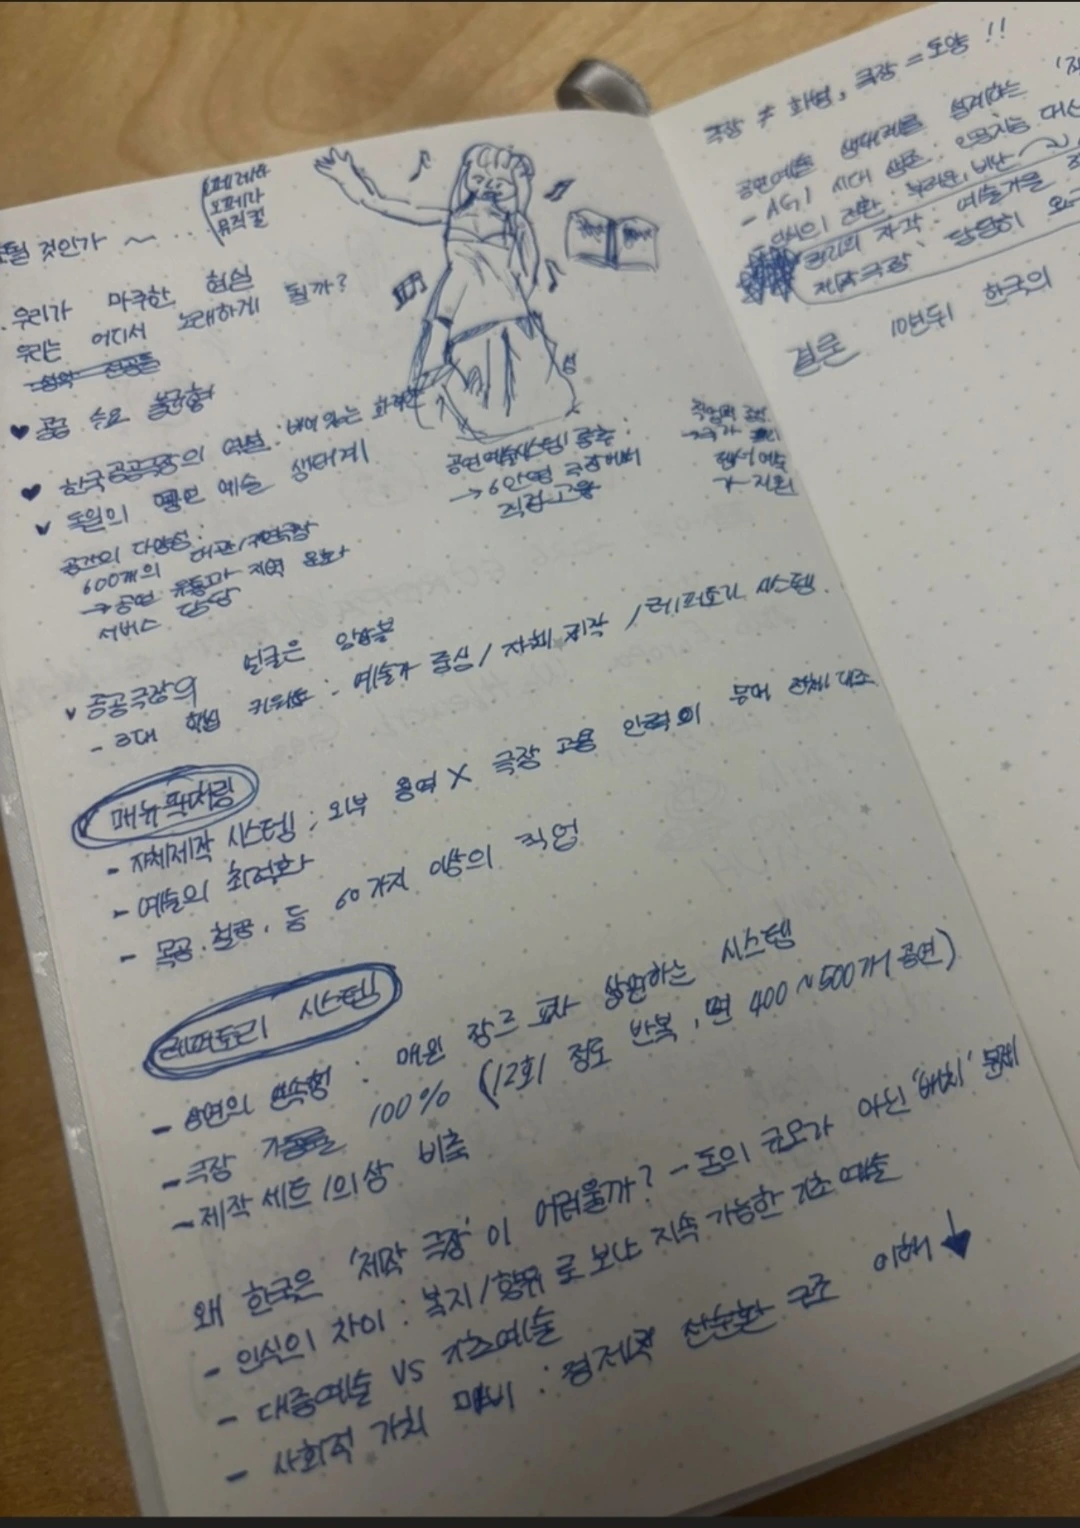 오페라
뮤지컬
될 것인가 ~ ...
우리가 마주한 현실
우리는 어디서 노래하게 될까?
♥ 공급 수요 불균형
♥ 한국공공극장의 역설: 비어있는
♥ 독일의 공연 예술 생태계
공간의 다양성:
600개의 대관/
→ 공연 유통과 지역 문화
서비스 담당
공연예술시스템 중추:
→ 6만명 극장에서
직접고용
→ 국가
지원
♥ 공공극장의 얼굴은 앙상블
- 3대 핵심 키워드: 예술가 중심 / 자체 제작 / 레퍼토리 시스템.
매뉴팩처링
- 자체제작 시스템; 외부 용역 X 극장 고용 인력이 무대 전체 제작
- 예술의 최적화
- 목공, 철공, 등 60가지 이상의 직업
레퍼토리 시스템
- 상연의 연속형: 매일 장르 교차 상연하는 시스템
- 극장 가동률 100% (12회 정도 반복, 연 400~500개 공연)
- 제작 세트/의상 비축
왜 한국은 '제작 극장'이 어려울까? - 돈의 규모가 아닌 '배치' 문제
- 인식의 차이: 복지/향유로 보냐 지속 가능한 기초 예술
- 대중예술 vs 기초예술
- 사회적 가치 : 경제적 선순환 구조 이해 ↓
극장 ≠ 화병, 극장 = 토양!!
공연예술 생태계를 설계하는
- AGI 시대 인공지능
의 전환:
권리의 자각: 예술가를
제작극장, 당당히 요구
결론 10년뒤 한국의